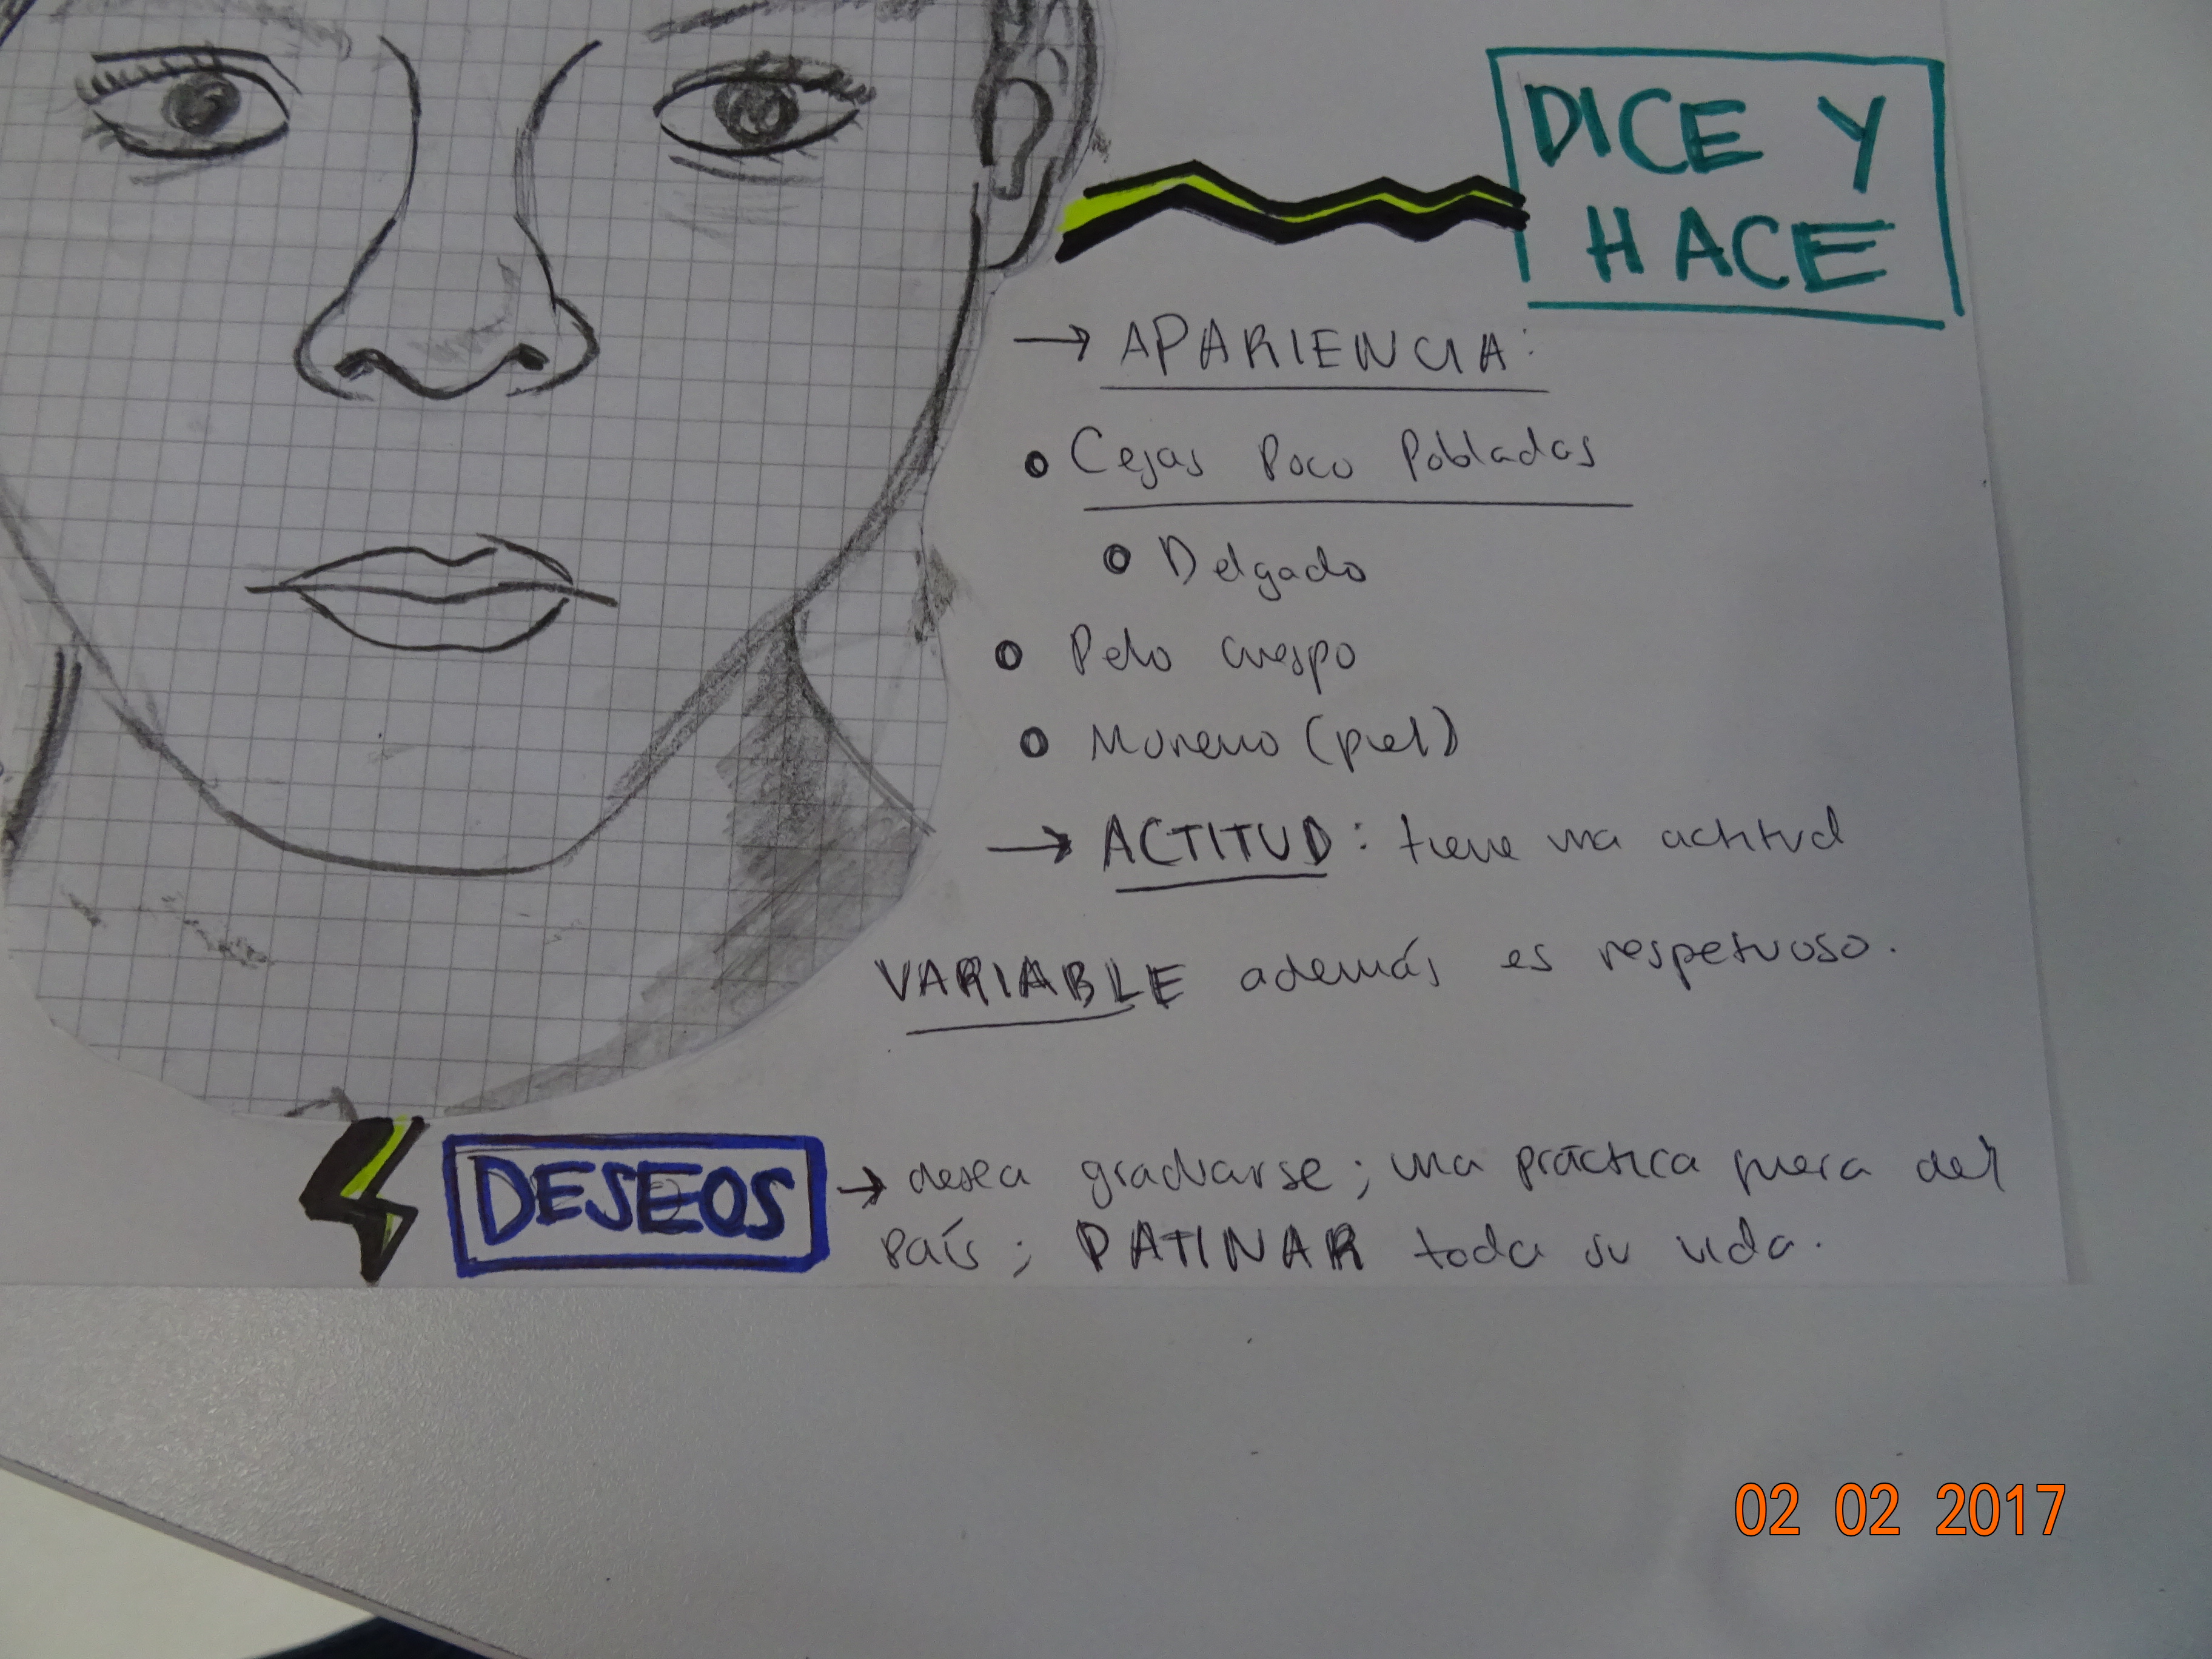 DICE Y
HACE
→ APARIENCIA:
• Cejas Poco Pobladas
• Delgado
• Pelo crespo
• Moreno (piel)
→ ACTITUD: tiene una actitud
VARIABLE además es respetuoso.
DESEOS → desea graduarse; una práctica fuera del
País; PATINAR toda su vida.
02 02 2017